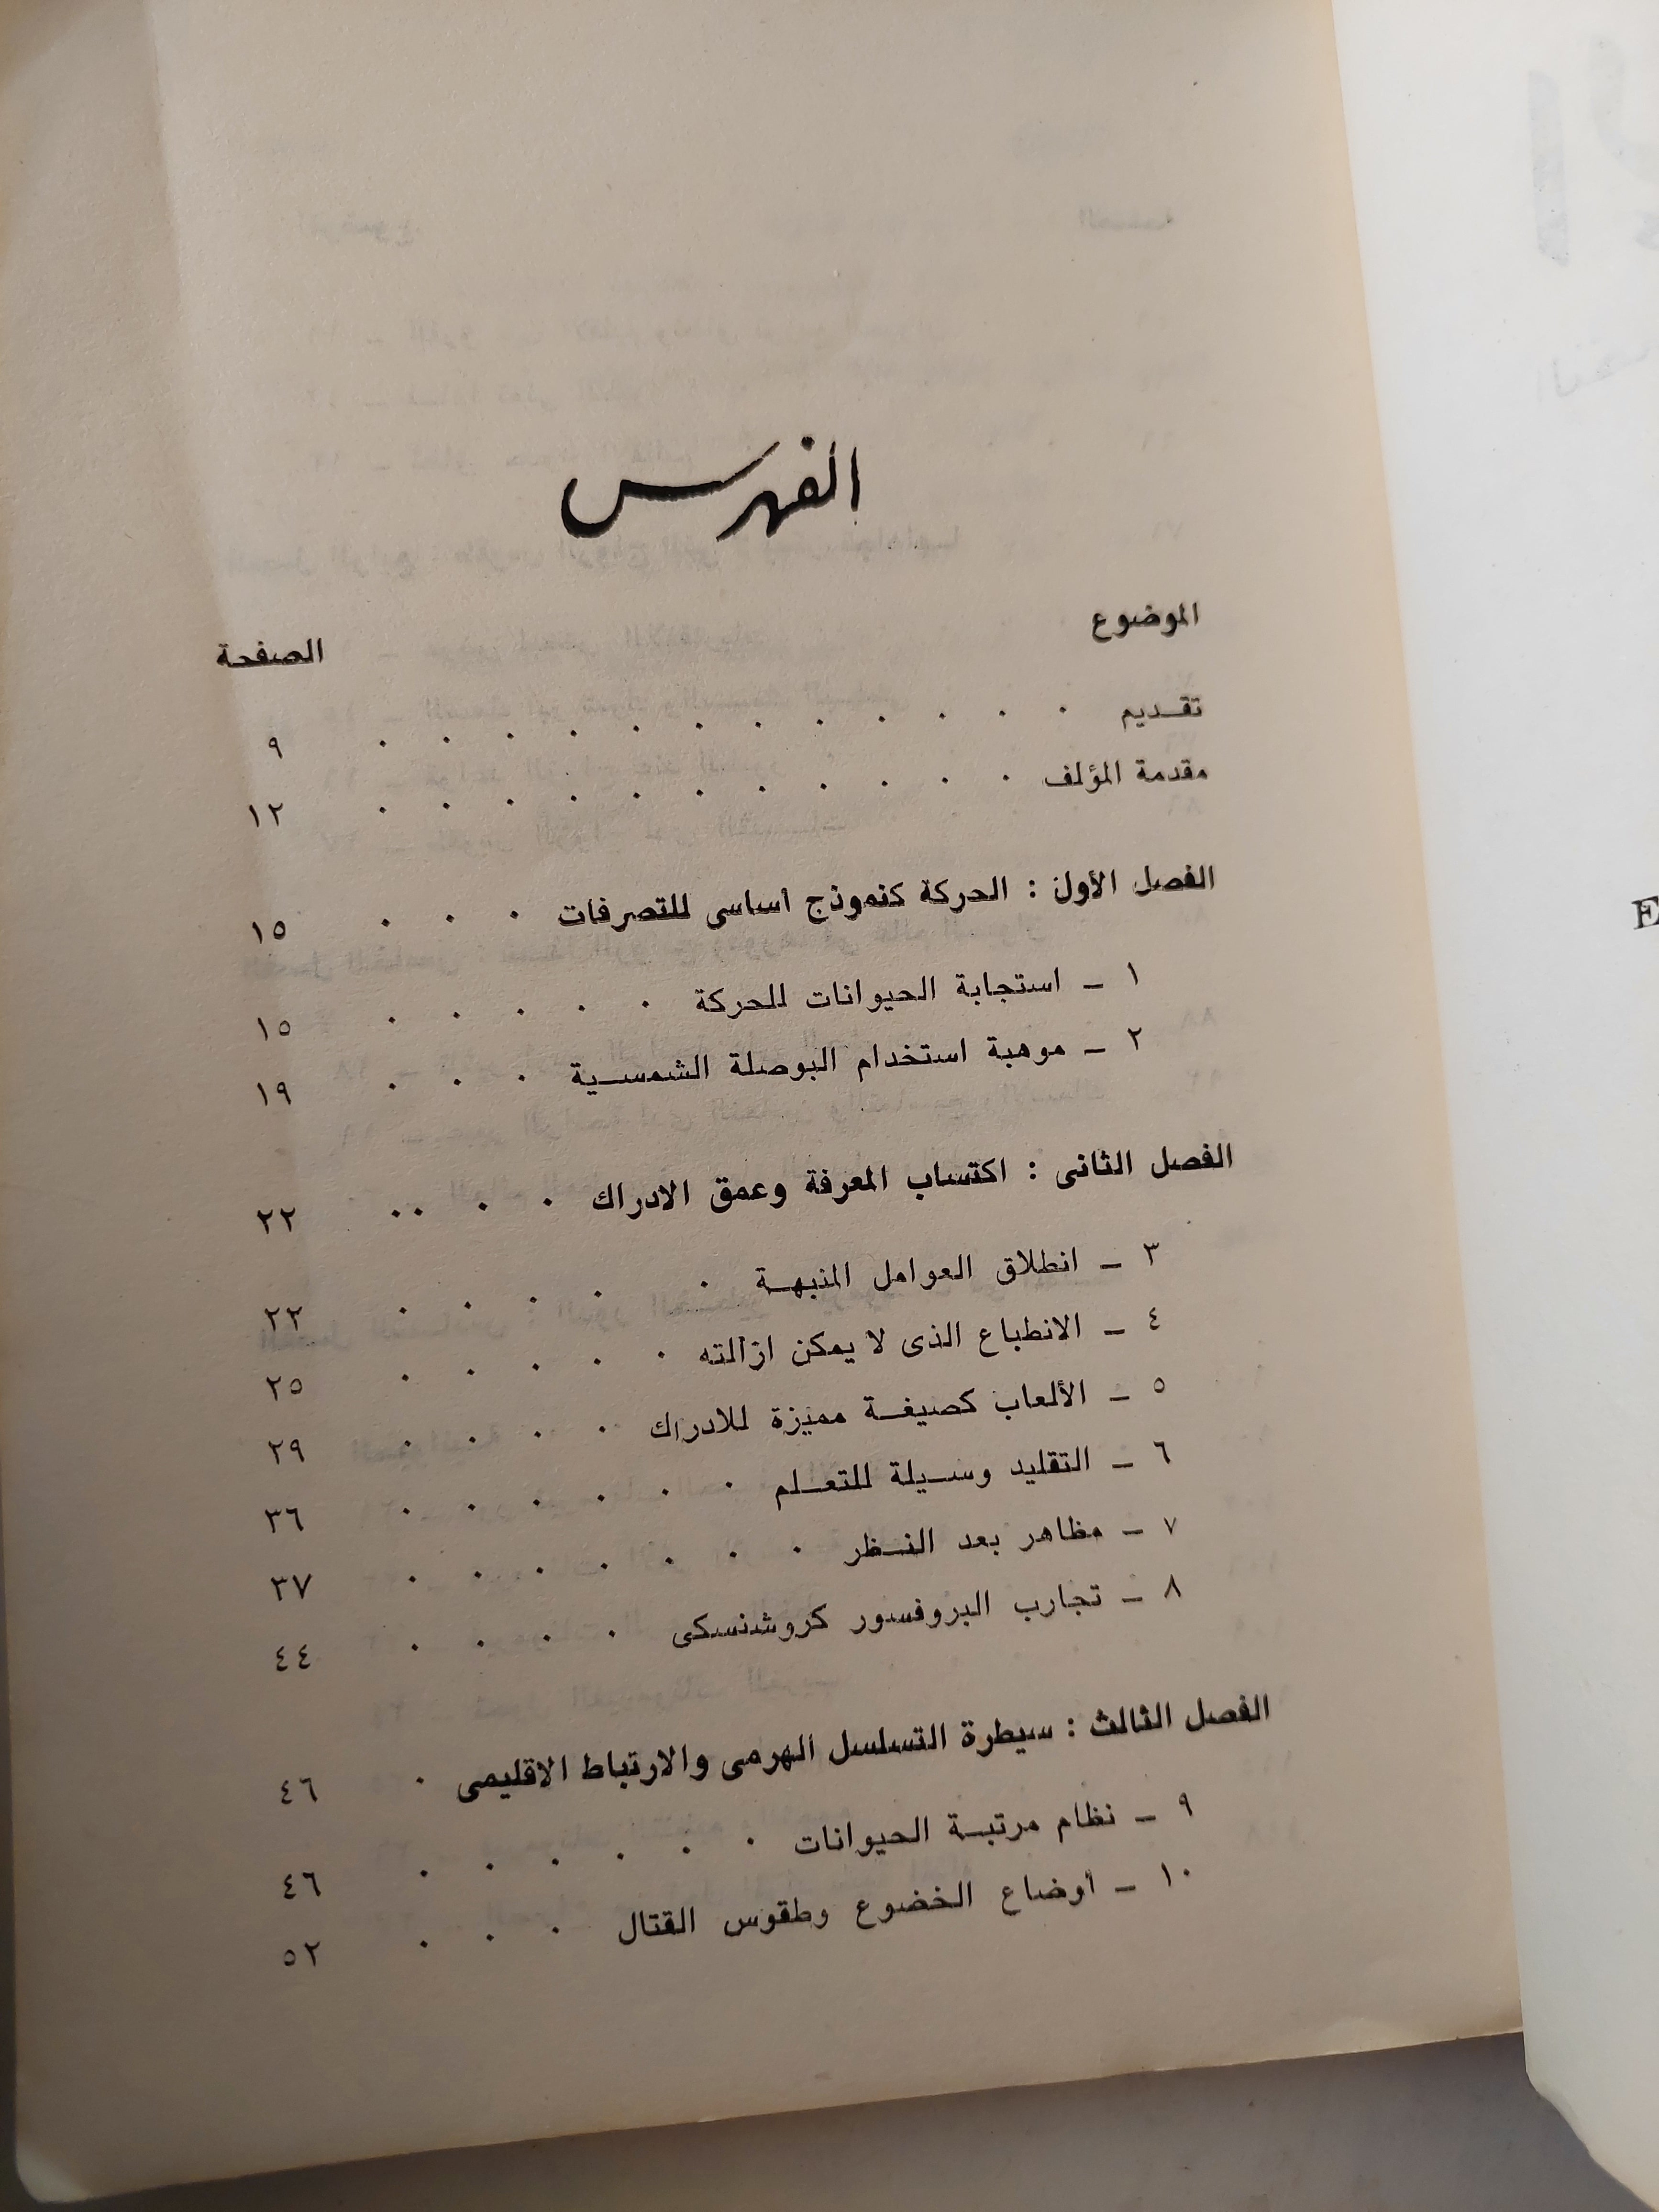 الفهرس
الموضوع الصفحة
تقـديم . . . . . . . . . . . . ٩
مقدمة المؤلف . . . . . . . . . . . ١٢
الفصل الأول : الحركة كنموذج أساسى للتصرفات . . . ١٥
١ ـ استجابة الحيوانات للحركة . . . . . ١٥
٢ ـ موهبة استخدام البوصلة الشمسـية . . . ١٩
الفصل الثانى : اكتساب المعرفة وعمق الادراك . . . . ٢٢
٣ ـ انطلاق العوامل المنبهـة . . . . . . ٢٢
٤ ـ الانطباع الذى لا يمكن ازالته . . . . . ٢٥
٥ ـ الألعاب كصيغـة مميزة للادراك . . . . ٢٩
٦ ـ التقليد وسـيلة للتعـلم . . . . . . ٣٦
٧ ـ مظاهر بعد النـظر . . . . . . . ٣٧
٨ ـ تجارب البروفسور كروشنسكى . . . . ٤٤
الفصل الثالث : سيطرة التسلسل الهرمى والارتباط الاقليمى . ٤٦
٩ ـ نظام مرتبـة الحيوانات . . . . . . ٤٦
١٠ ـ أوضاع الخضوع وطقوس القتال . . . ٥٢
E